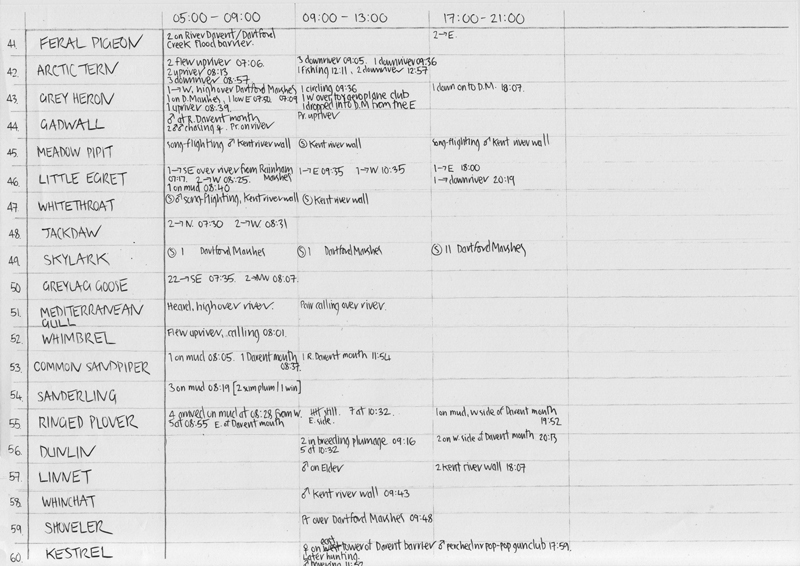 05:00 - 09:00 09:00 - 13:00 17:00 - 21:00
41. FERAL PIGEON 2 on River Davent/Dartford 2→E.
Creek flood barrier.
42. ARCTIC TERN 2 flew upriver 07.06. 3 downriver 09.05. 1 downriver 09:36
2 upriver 08:13 1 fishing 12.11, 2 downriver 12:57
3 downriver 08:57
43. GREY HERON 1→W. high over Dartford Marshes 1 circling 09:36 1 down onto D.M. 18:07.
1 on D. Marshes, 1 low E 07:52 07:09 1 W over aeroplane club
1 upriver 08.39. 1 dropped into D.M from the E
44. GADWALL ♂ at R. Davent mouth Pr. upriver
chasing ♀. Pr. on river
45. MEADOW PIPIT song-flighting ♂ Kent river wall Ⓢ Kent river wall song-flighting ♂ Kent river wall
46. LITTLE EGRET 1→SE over river from Rainham 1→E 09:35 1→W 10:35 1→E 18:00
07:17. 2→W 08:25. Marshes 1→downriver 20:19
1 on mud 08:40
47. WHITETHROAT Ⓢ ♂ song-flighting, Kent river wall Ⓢ Kent river wall
48. JACKDAW 2→N. 07:30 2→W. 08:31
49. SKYLARK Ⓢ 1 Dartford Marshes Ⓢ 1 Dartford Marshes Ⓢ 11 Dartford Marshes
50 GREYLAG GOOSE 22→SE 07:35. 2→NW 08:07.
51. MEDITERRANEAN Heard, high over river. Pair calling over river.
GULL
52. WHIMBREL Flew upriver, calling 08:01.
53. COMMON SANDPIPER 1 on mud 08:05. 1 Davent mouth 1 R. Davent mouth 11:54
08:37.
54. SANDERLING 3 on mud 08:19 [2 sum plum / 1 win]
55. RINGED PLOVER 4 arrived on mud at 08:28 from W. still. 7 at 10:32. 1 on mud, W side of Davent mouth
5 at 08:55 E. of Davent mouth E. side. 19:52
56. DUNLIN 2 in breeding plumage 09:16 2 on W. side of Davent mouth 20:13
5 at 10:32
57. LINNET ♂ on Elder 2 Kent river wall 18:07
58. WHINCHAT ♂ Kent river wall 09:43
59. SHOVELER Pr over Dartford Marshes 09:48
60. KESTREL ♀ on east tower of Davent barrier ♂ perched nr pop-pop gun club 17:59.
later hunting.